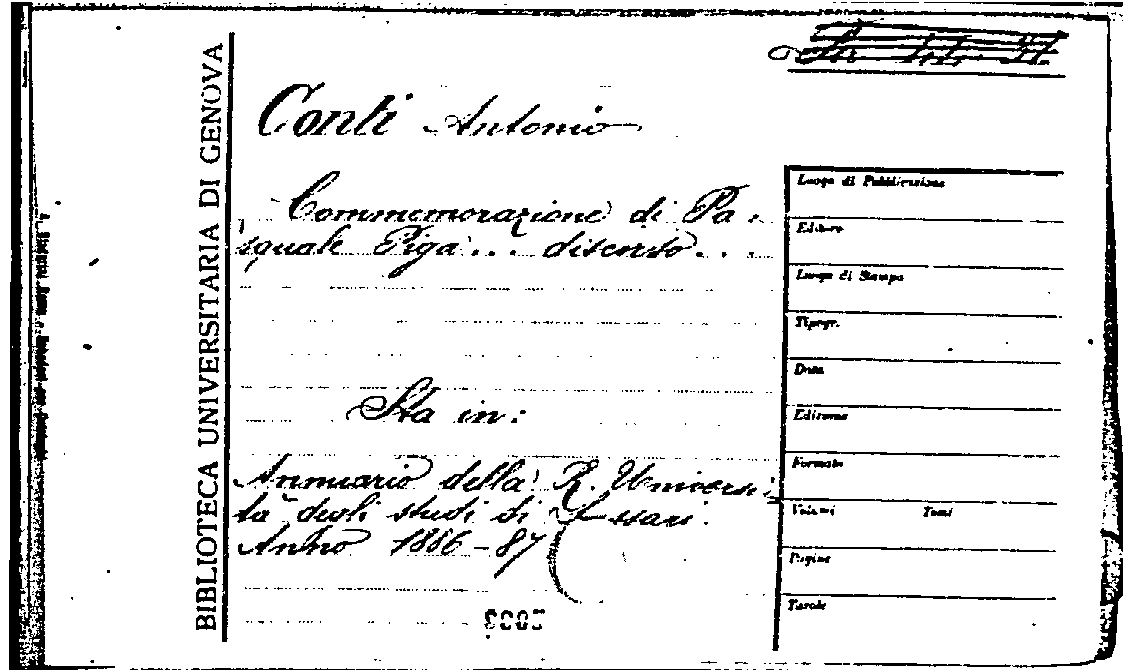 BIBLIOTECA UNIVERSITARIA DI GENOVA
Conti Antonio
Commemorazione di Pa-
squale Piga... discorso...
Sta in:
Annuario della R. Universi-
tà degli studi di Sassari.
Anno 1886-87
Luogo di Pubblicazione
Editore
Luogo di Stampa
Tipogr.
Data
Edizione
Formato
Volumi Tomi
Pagine
Tavole